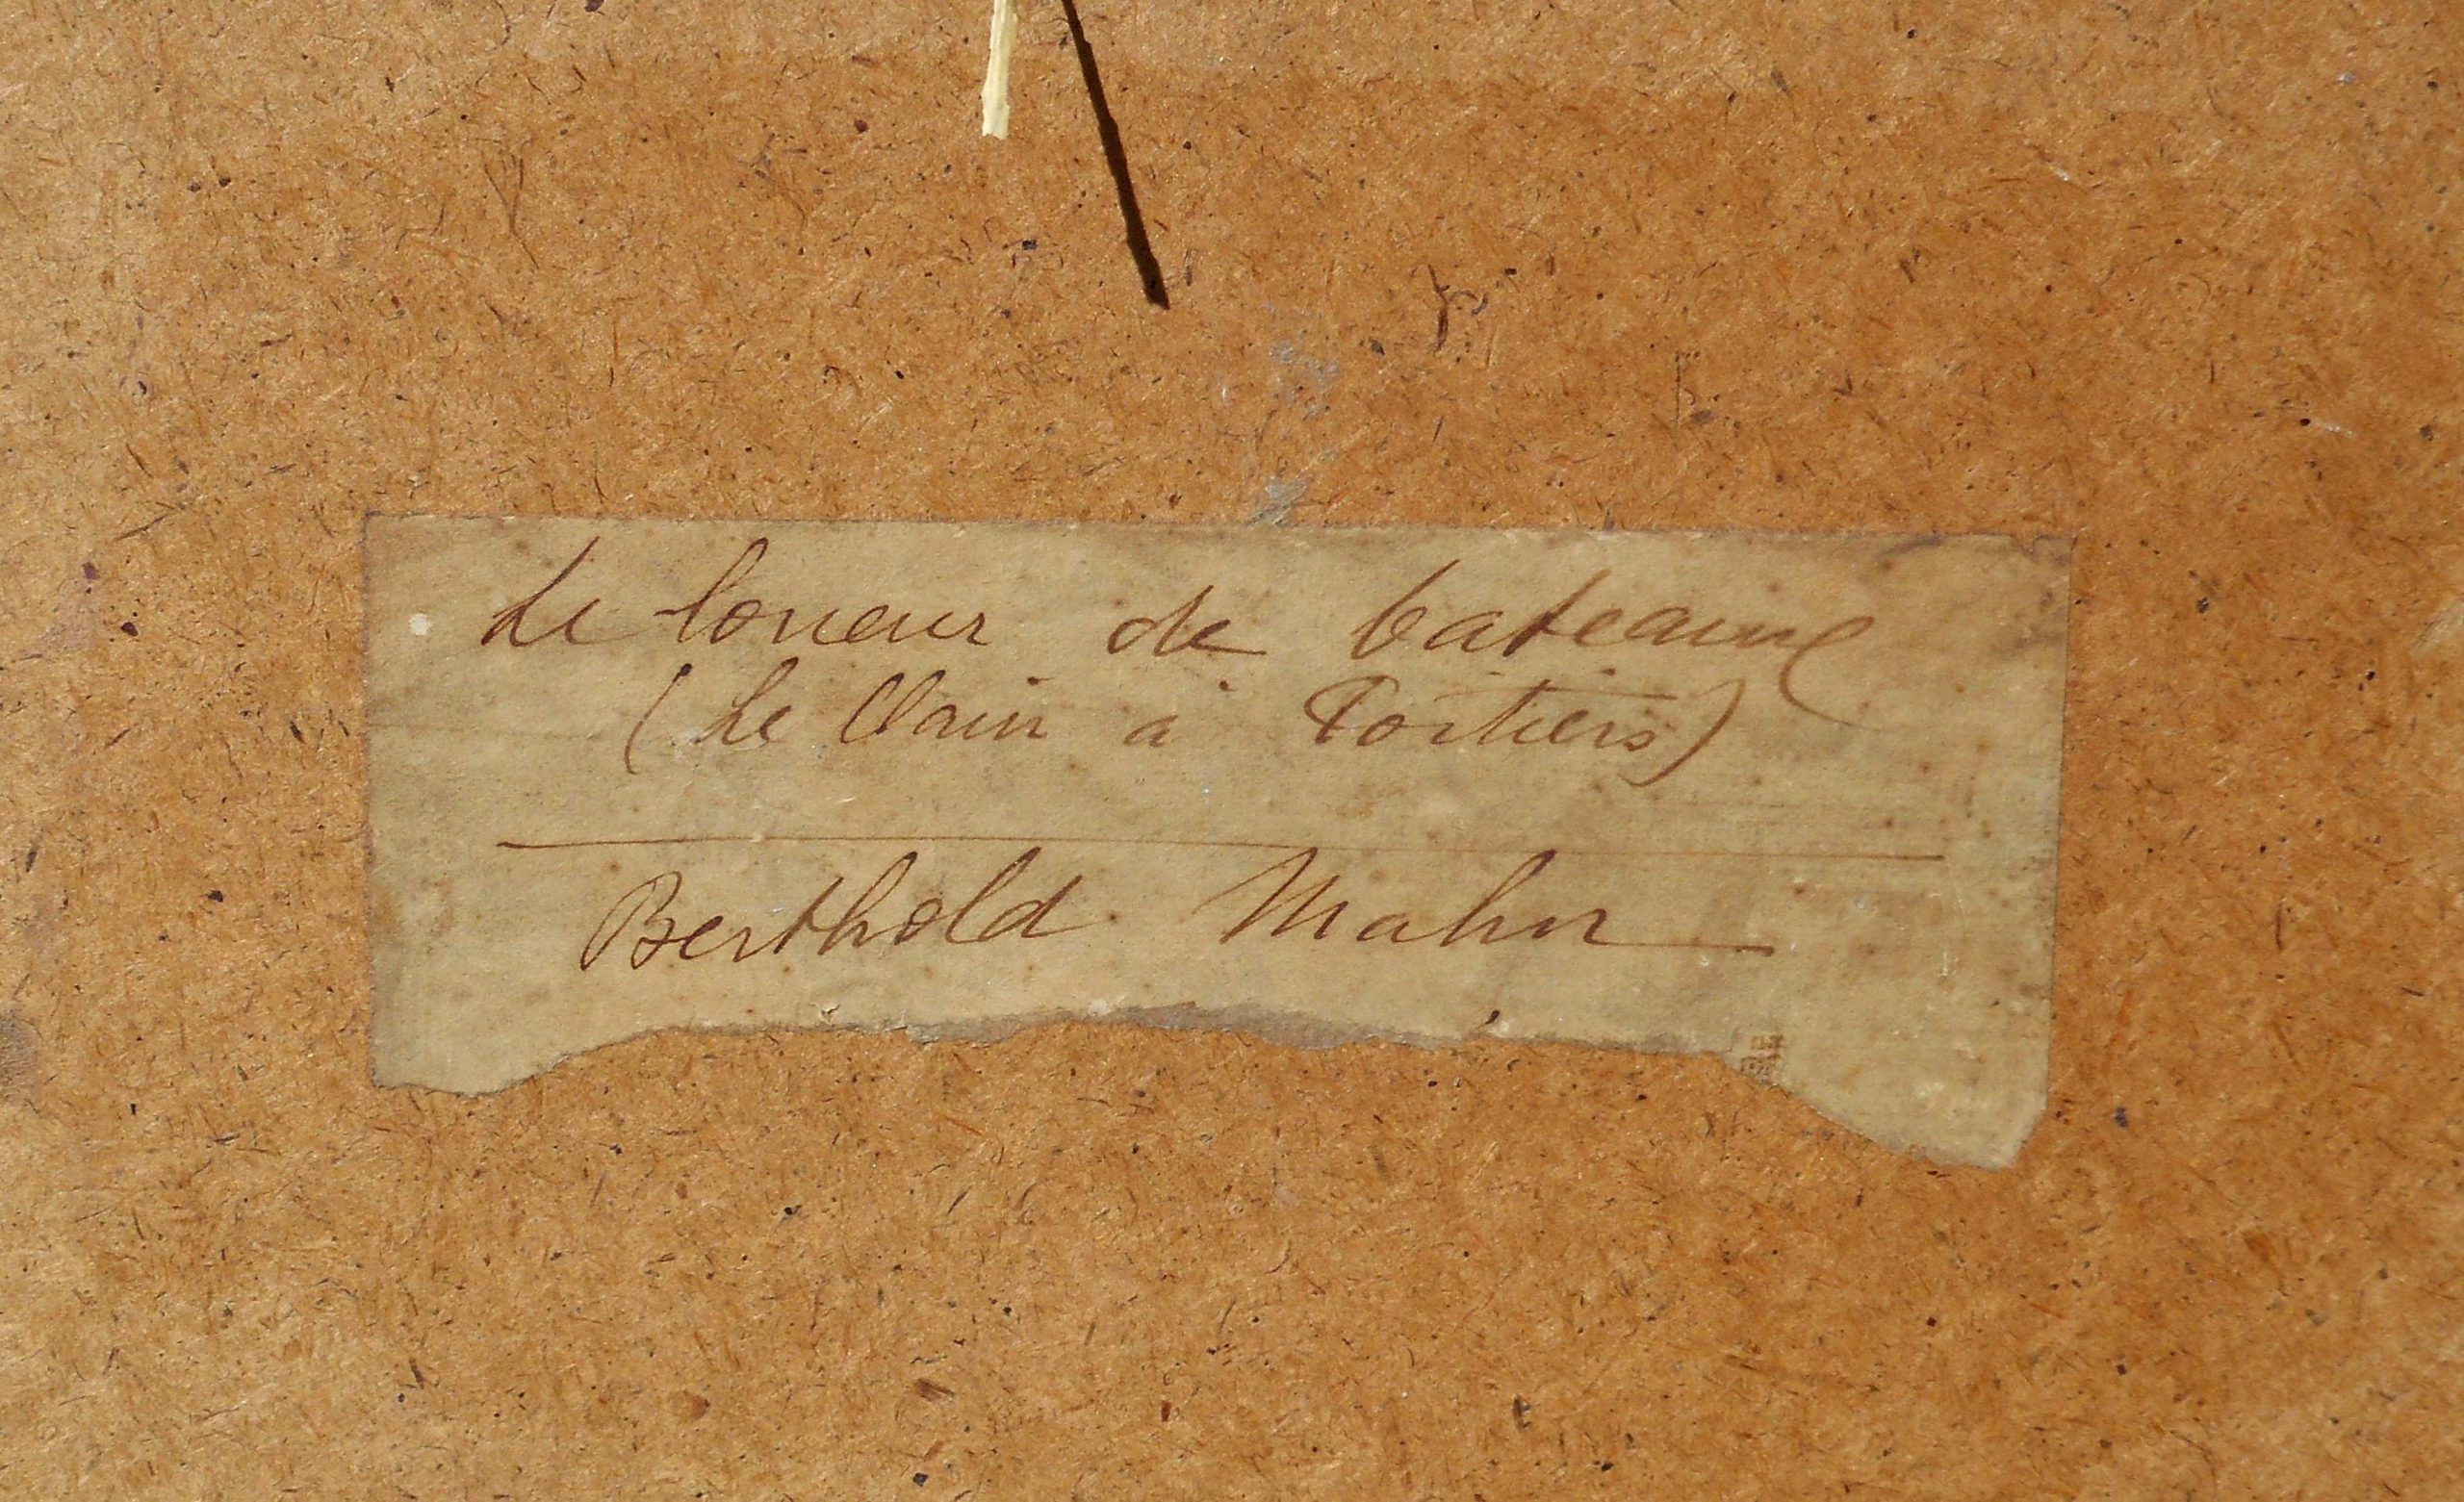 Le loueur de bateaux
(Le Clain à Poitiers)
Berthold Mahn